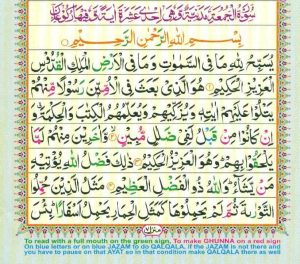 سُوْرَةُ الْجُمُعَةِ مَدَنِيَّةٌ وَّهِيَ اِحْدٰى عَشْرَةَ اٰيَةً وَّفِيْهَا رُكُوْعَانِ
بِسْمِ اللّٰهِ الرَّحْمٰنِ الرَّحِيْمِ
يُسَبِّحُ لِلّٰهِ مَا فِي السَّمٰوٰتِ وَمَا فِي الْاَرْضِ الْمَلِكِ الْقُدُّوْسِ
الْعَزِيْزِ الْحَكِيْمِ هُوَ الَّذِيْ بَعَثَ فِي الْاُمِّيّٖنَ رَسُوْلًا مِّنْهُمْ
يَتْلُوْا عَلَيْهِمْ اٰيٰتِهٖ وَيُزَكِّيْهِمْ وَيُعَلِّمُهُمُ الْكِتٰبَ وَالْحِكْمَةَ وَ
اِنْ كَانُوْا مِنْ قَبْلُ لَفِيْ ضَلٰلٍ مُّبِيْنٍ وَّاٰخَرِيْنَ مِنْهُمْ لَمَّا
يَلْحَقُوْا بِهِمْ وَهُوَ الْعَزِيْزُ الْحَكِيْمُ ذٰلِكَ فَضْلُ اللّٰهِ يُؤْتِيْهِ
مَنْ يَّشَآءُ وَاللّٰهُ ذُو الْفَضْلِ الْعَظِيْمِ مَثَلُ الَّذِيْنَ حُمِّلُوا
التَّوْرٰىةَ ثُمَّ لَمْ يَحْمِلُوْهَا كَمَثَلِ الْحِمَارِ يَحْمِلُ اَسْفَارًا بِئْسَ
To read with a full mouth on the green sign, To make GHUNNA on a red sign
On blue letters or on blue JAZAM to do QALQALA, if the JAZAM is not there and
you have to pause on that AYAT so in that condition make QALQALA there as well